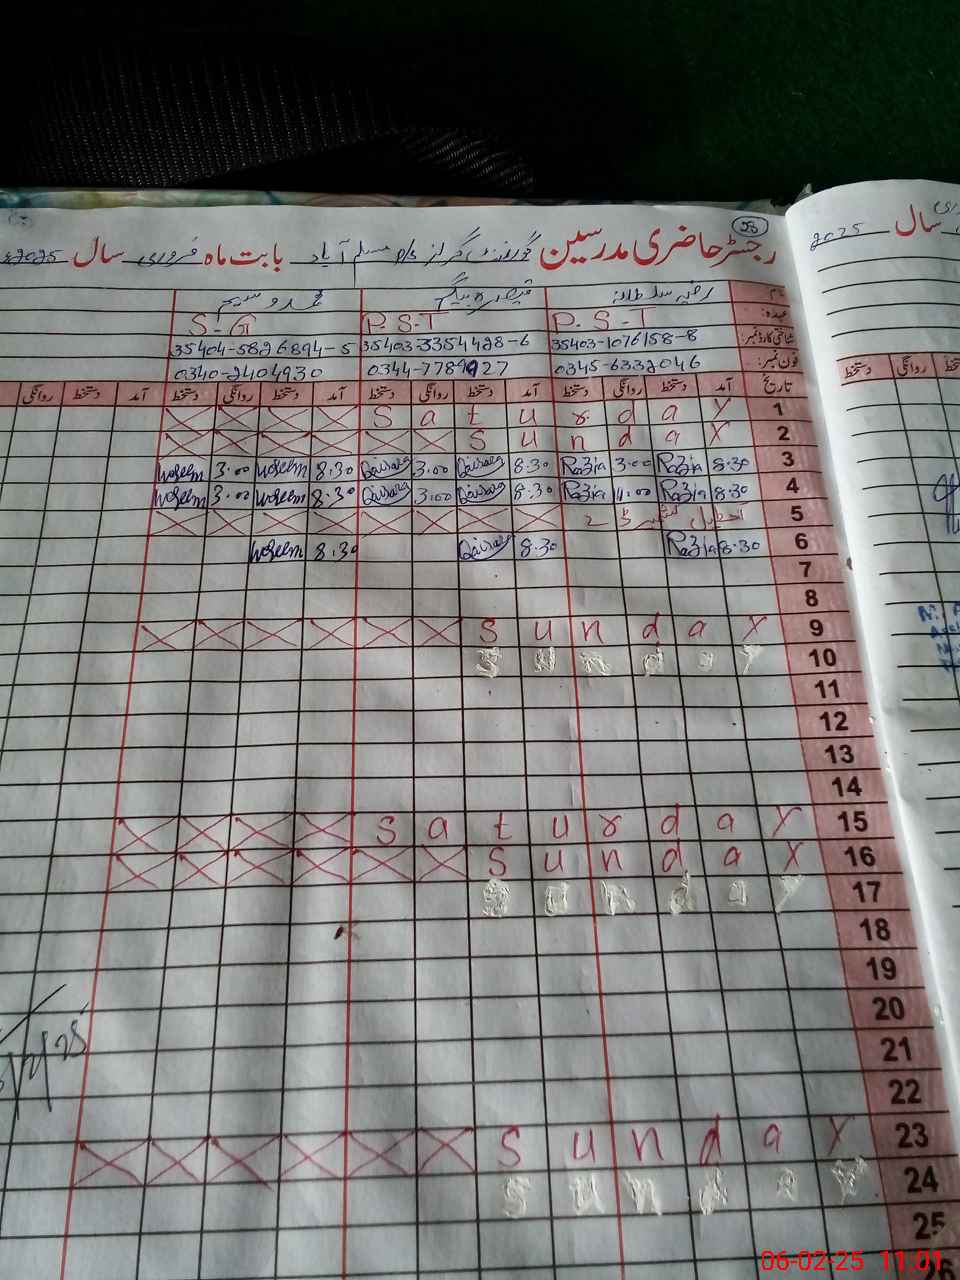 28
رجسٹر حاضری مدرسین گورنمنٹ گرلز مسلم آباد بابت ماہ فروری سال 2025ء
نام رضیہ سلطانہ قیصرہ بیگم محمد وسیم
عہدہ: P.S.T P.S.T S-G
شناختی کارڈ نمبر: 35403-1076158-8 35403-3354428-6 35404-5826894-5
فون نمبر: 0345-6332046 0344-7789927 0340-2404930
تاریخ آمد دستخط روانگی دستخط آمد دستخط روانگی دستخط آمد دستخط روانگی دستخط آمد دستخط روانگی
1 Saturday
2 Sunday
3 8.30 Razia 3.00 Razia 8.30 Qaisara 3.00 Qaisara 8.30 Waseem 3.00 Waseem
4 8.30 Razia 11.00 Razia 8.30 Qaisara 3.00 Qaisara 8.30 Waseem 3.00 Waseem
5 کشمیر ڈے
6 8.30 Razia 8.30 Qaisara 8.30 Waseem
7
8
9 Sunday
10 Sunday
11
12
13
14
15 Saturday
16 Sunday
17 Sunday
18
19
20
21
22
23 Sunday
24 Sunday
25
26
سال 2025
دستخط روانگی
06-02-25 11:01